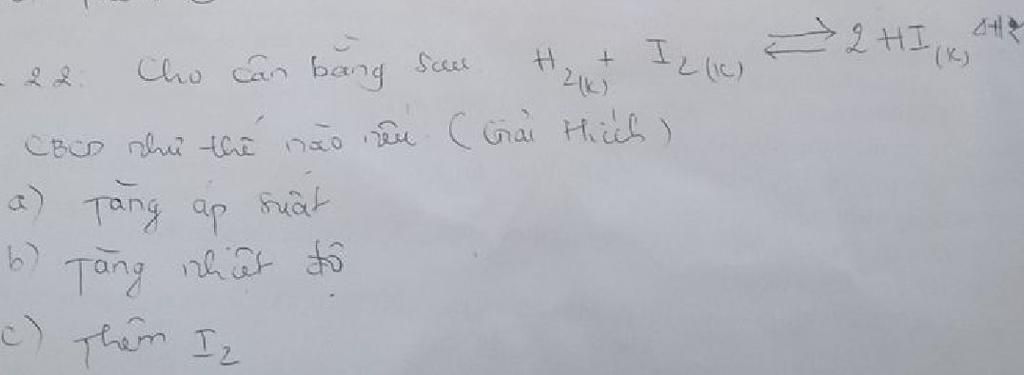 22. Cho cân bằng sau H2(k) + I2(k) ⇌ 2HI(k) ΔH
CBCD như thế nào nếu (Giải thích)
a) Tăng áp suất
b) Tăng nhiệt độ
c) Thêm I2